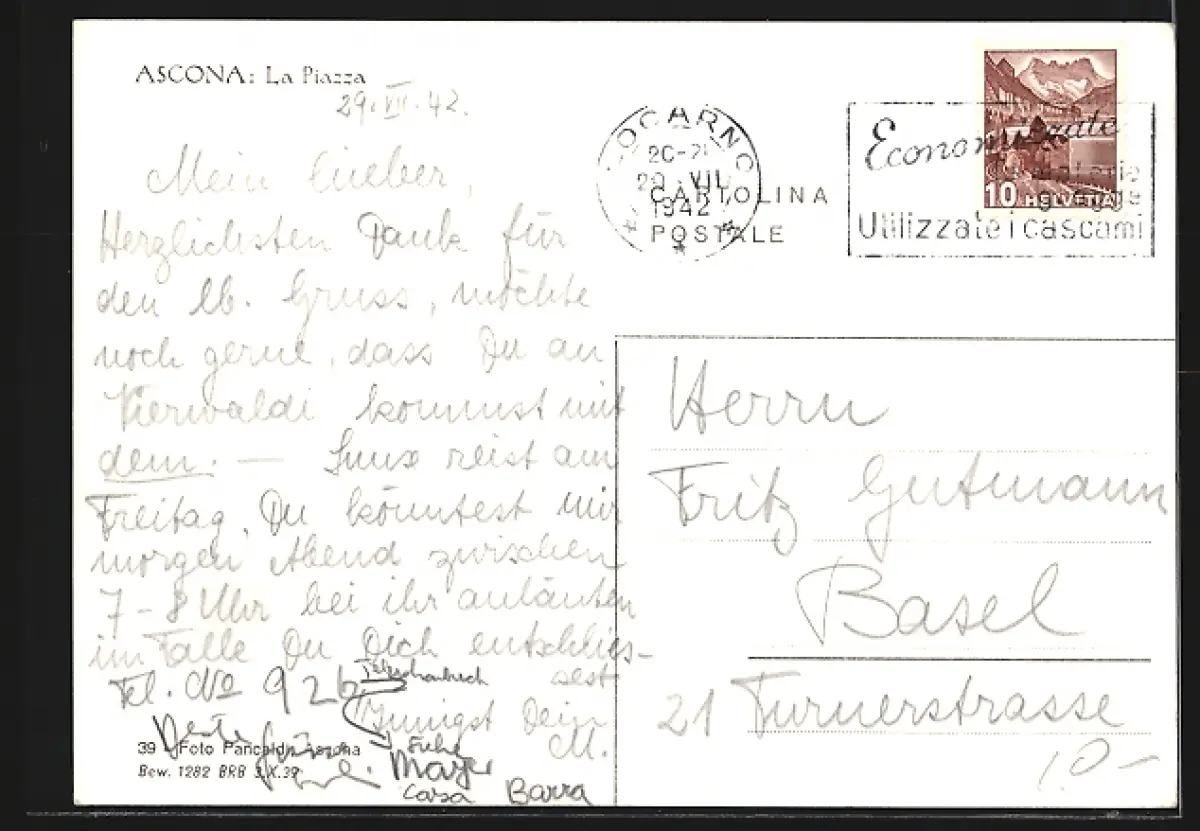 ASCONA: La Piazza
29.VII.42.
Mein Lieber,
Herzlichsten Dank für
den lb. Gruss, möchte
noch gerne, dass Du an
Vierwaldi kommst mit
dem. — reist am
Freitag, Du könntest mir
morgen Abend zwischen
7-8 Uhr bei ihr anläuten
im Falle Du Dich entschlies-
sest
Tel. No 926
Innigst Dein
M.
Beste Grüsse
Mayer
Casa Barra
39 Foto Pancaldi, Ascona
Bew. 1282 BRB 3.X.39
LOCARNO
20-21
29.VII
1942
CARTOLINA
POSTALE
Economizzate
Utilizzate i cascami
10 HELVETIA
Herrn
Fritz Gutmann
Basel
21 Turnerstrasse
10-